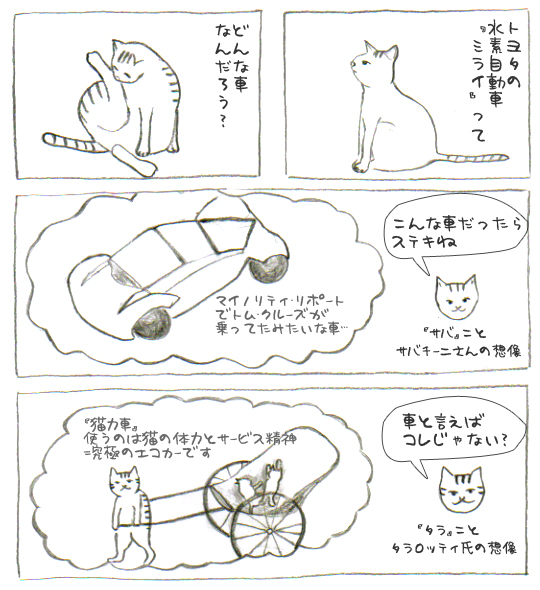 トヨタの
水素自動車
『ミライ』って
どんな車
なんだろう?
こんな車だったら
ステキね
マイノリティ・リポート
でトム・クルーズが
乗ってたみたいな車…
『サバ』こと
サバチーニさんの想像
『猫力車』
使うのは猫の体力とサービス精神
=究極のエコカーです
車と言えば
コレじゃない?
『タラ』こと
タラロッティ氏の想像